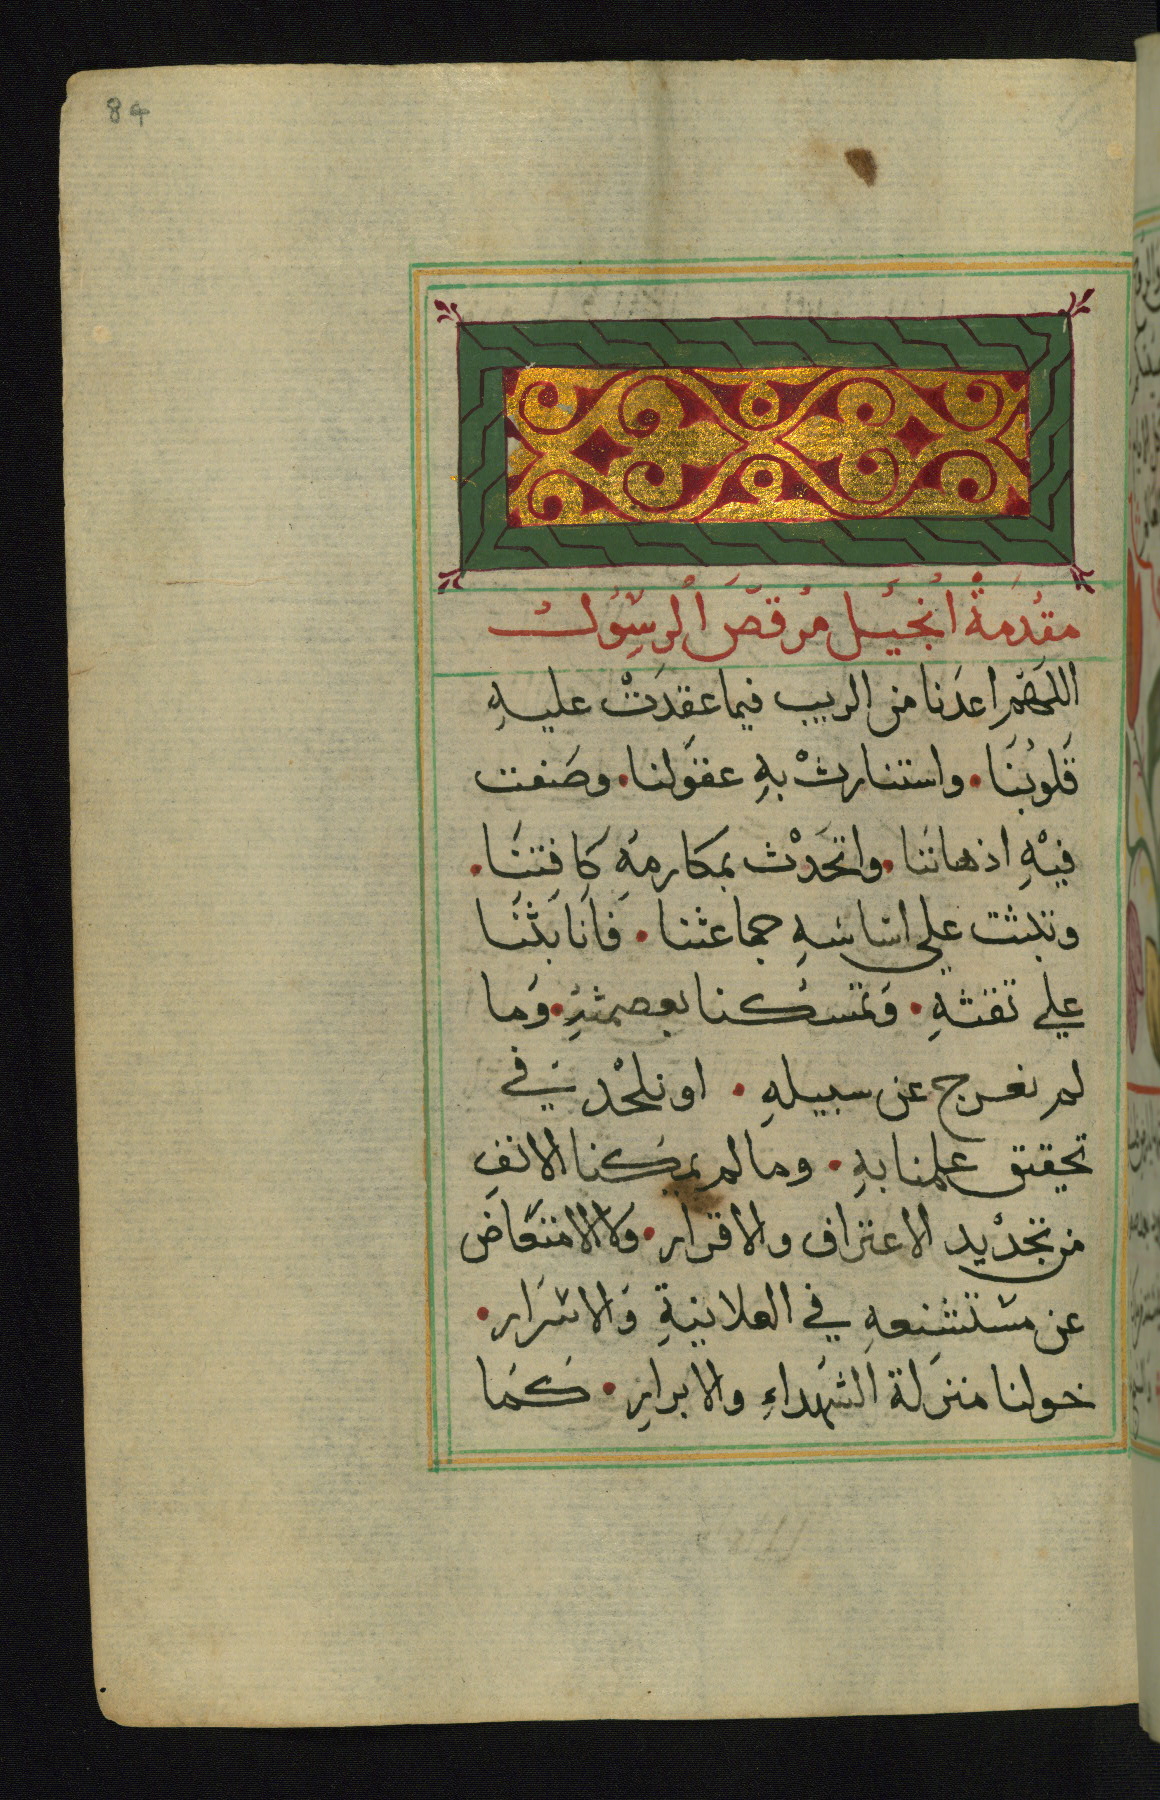 84
مقدمة انجيل مرقص الرسول
اللهم اعدنا من الريب فيما عقدت عليه
قلوبنا. واستنارت به عقولنا. وصفت
فيه اذهاننا. واتحدت بمكارمه كافتنا.
وتبثت علي اساسه جماعثنا. فاننا بثنا
علي تقثه. وتمسكنا بعصمثه. وما
لم نعرج عن سبيله. او نلحد في
تحقيق علمنا به. وما لم يمكنا الانف
من تجديد الاعتراف والاقرار. ولا الامتعاض
عن مستشنعه في العلانية والاسرار.
خولنا منزلة الشهداء والابرار. كما